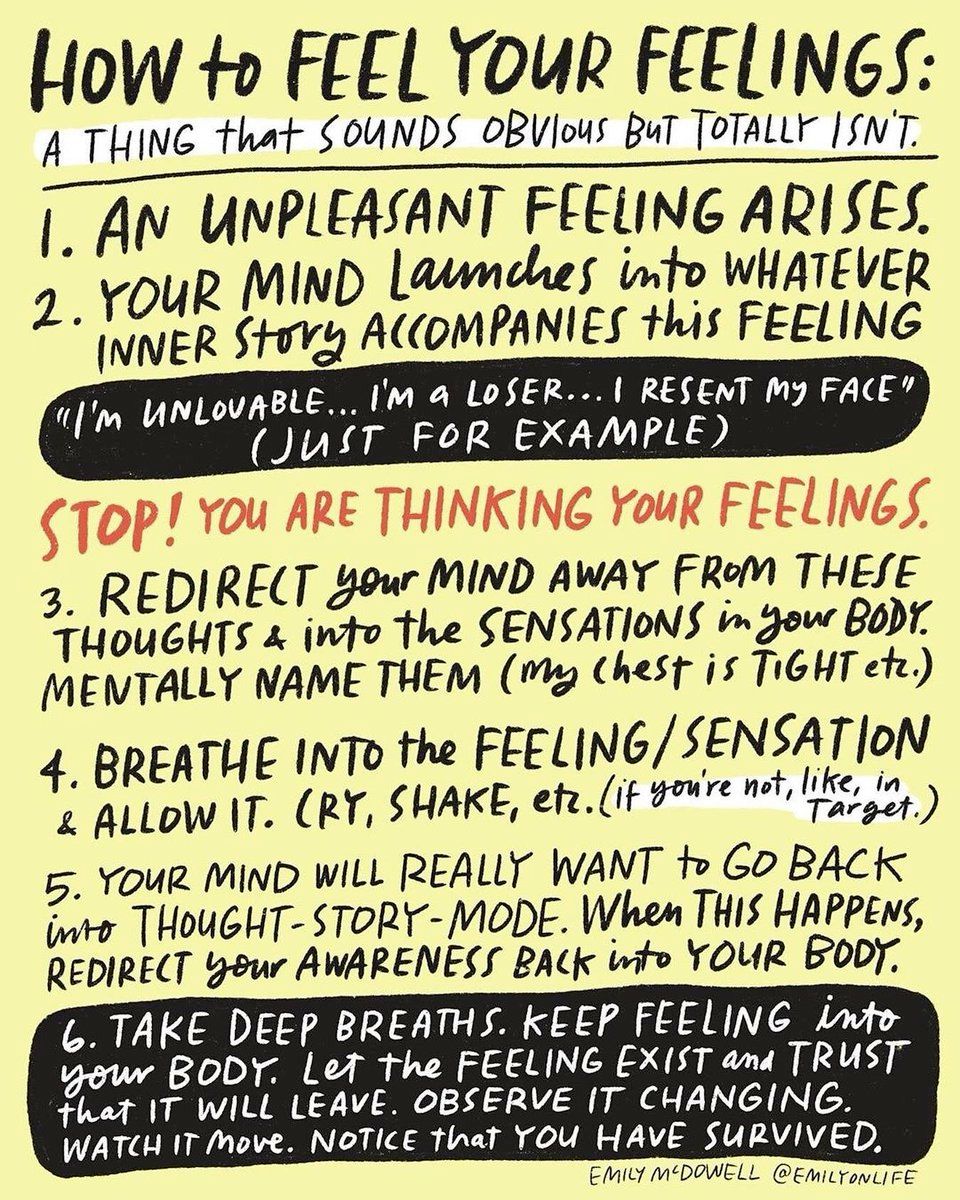 HOW to FEEL YOUR FEELINGS:
A THING that SOUNDS OBVIOUS BUT TOTALLY ISN'T.
1. AN UNPLEASANT FEELING ARISES.
2. YOUR MIND Launches into WHATEVER
INNER Story ACCOMPANIES this FEELING
"I'm UNLOVABLE... I'm a LOSER... I RESENT My FACE"
(JUST FOR EXAMPLE)
STOP! YOU ARE THINKING YOUR FEELINGS.
3. REDIRECT your MIND AWAY FROM THESE
THOUGHTS & into the SENSATIONS in your BODY.
MENTALLY NAME THEM (My Chest is TIGHT etc.)
4. BREATHE INTO the FEELING/SENSATION
& ALLOW IT. CRY, SHAKE, etc. (if you're not, like, in
Target.)
5. YOUR MIND WILL REALLY WANT to GO BACK
into THOUGHT-STORY-MODE. When THIS HAPPENS,
REDIRECT your AWARENESS BACK into YOUR BODY.
6. TAKE DEEP BREATHS. KEEP FEELING into
your BODY. Let the FEELING EXIST and TRUST
that IT WILL LEAVE. OBSERVE IT CHANGING.
WATCH IT Move. NOTICE that YOU HAVE SURVIVED.
EMILY McDOWELL @EMILYONLIFE